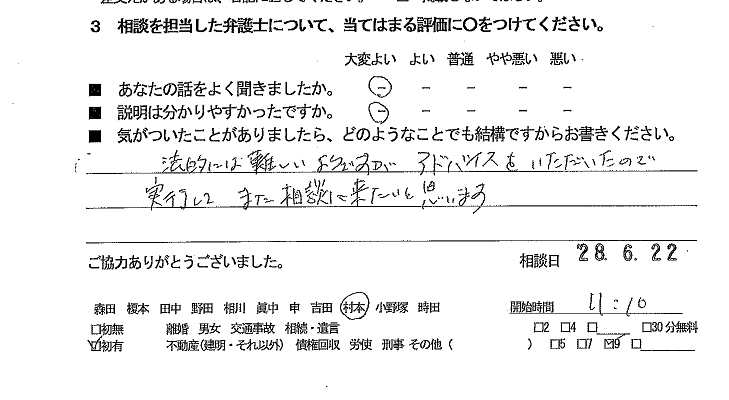 3　相談を担当した弁護士について、当てはまる評価に〇をつけてください。
大変よい　よい　普通　やや悪い　悪い
■　あなたの話をよく聞きましたか。　－　－　－　－　－
■　説明は分かりやすかったですか。　－　－　－　－　－
■　気がついたことがありましたら、どのようなことでも結構ですからお書きください。
法的には難しいようですが アドバイスをいただいたので
実行して また相談に来たいと思います
ご協力ありがとうございました。　相談日　'28. 6. 22
森田　榎本　田中　野田　相川　眞中　申　吉田　村本　小野塚　時田　開始時間　11:10
□初無　離婚　男女　交通事故　相続・遺言　□2　□4　□　□30分無料
☑初有　不動産(建明・それ以外)　債権回収　労使　刑事　その他（　）　□5　□7　☑9　□